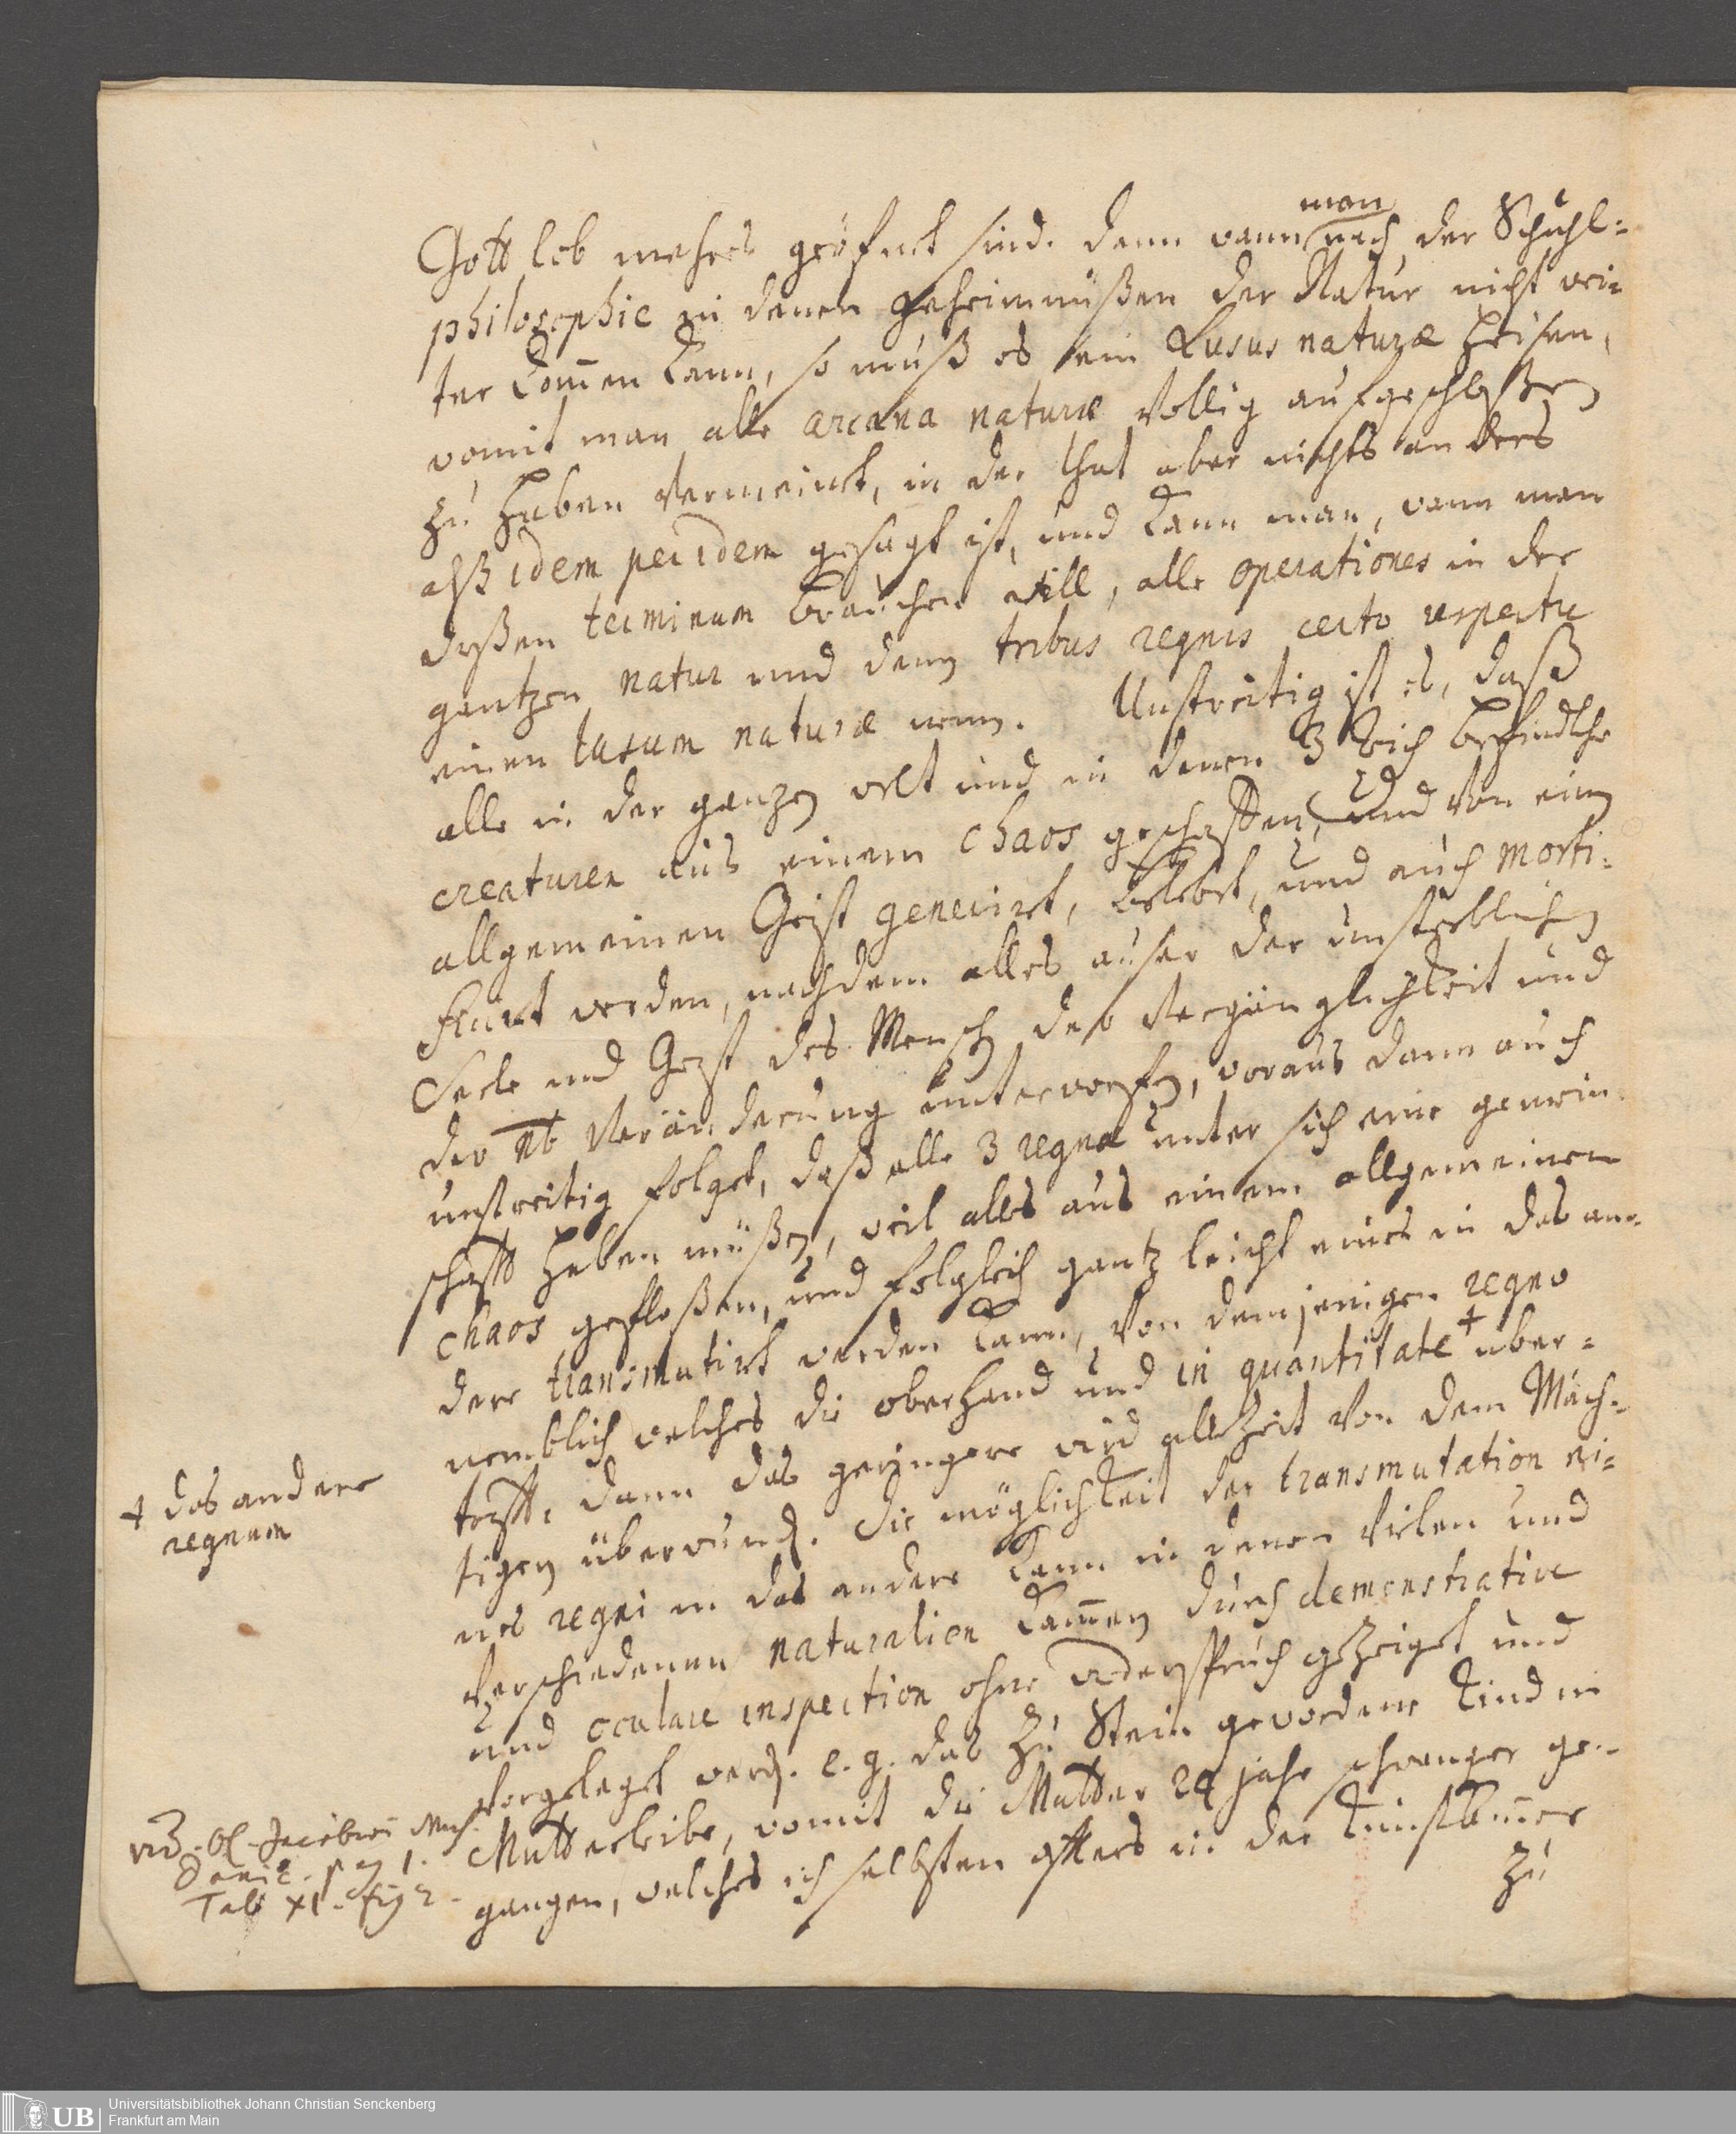 man
Gott lob mehres geöfnet sind. dann wann nach der Schuhl=
philosophie in denen geheimnüßen der Natur nicht wei=
ter kom̅en kann, so muß es ein Lusus naturæ heisen,
womit man alle arcana naturæ völlig aufgeschloßen
zu haben vermeinet, in der that aber nichts anders
alß idem per idem gesagt ist, und kann man, wann man
dießen terminum brauchen will, alle operationes in der
gantzen natur und denen tribus regnis certo respectu
einen lusum naturæ nennen. Unstreitig ist es, daß
alle in der ganzen welt und in denen 3 Reich befindliche
creaturen aus einem chaos geschaffen, und von einem
allgemeinen Geist generiret, belebet, und auch morti=
ficiret werden, nachdem alles auser der unsterblichen
Seele und Geist des Menschen der Vergänglichkeit und
der NB Veränderung unterworfen, woraus dann auch
unstreitig folget, daß alle 3 regna unter sich eine gemein
schafft haben müßen, weil alles aus einem allgemeinen
chaos gefloßen, und folglich gantz leicht eines in das an=
dere transmutirt werden kann, von demjenigen regno
nemblich welches die oberhand und in quantitate + über=
trifft, dann das geringere wird allezeit von dem Mäch=
tigen überwunden. Die möglichkeit der transmutation ei=
nes regni in das andere kann in denen vielen und
verschiedenen naturalien Kam̅ern durch demonstrative
und oculare inspection ohne wiederspruch gezeiget und
vorgeleget werden. e.g. das zu Stein gewordene Kind in
Mutterleibe, womit die Mutter 24 jahr schwanger ge=
gangen, welches ich selbsten öffters in der Kunstkam̅er
zu
+ das andere
regnum
vid. Ol. Jacobœi Mus.
Danic. pag 1.
Tab XI. fig 2.
Universitätsbibliothek Johann Christian Senckenberg
Frankfurt am Main
UB